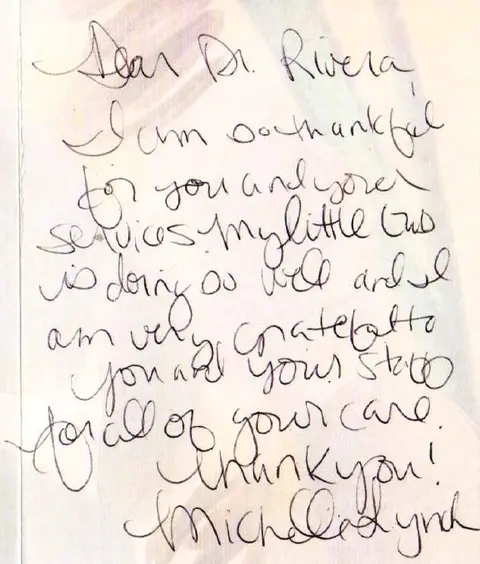 Dear Dr. Rivera,
I am so thankful
for you and your
services. My little Gus
is doing so well and I
am very grateful to
you and your staff
for all of your care.
Thank you!
Michelle Lynch